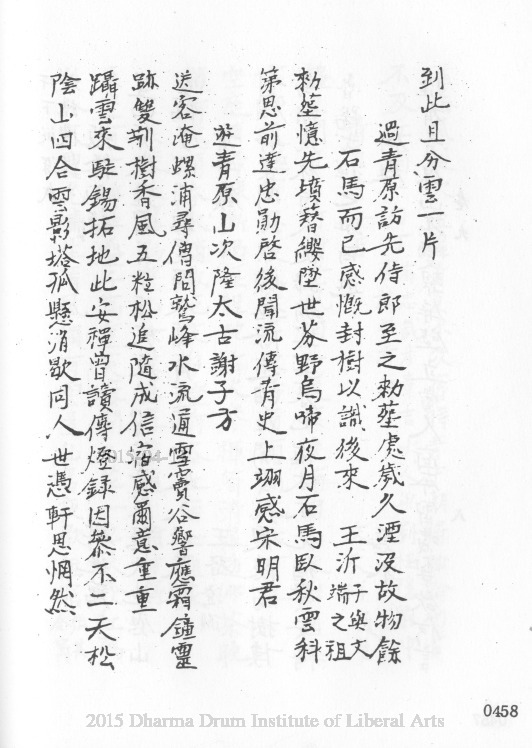 到此且分雲一片
過青原訪先侍郎至之勅塋處歲久湮沒故物餘
石馬而已感慨封樹以識後來　王沂子與文端之祖
勅塋憶先墳簪纓墜世芬野烏啼夜月石馬臥秋雲科
第思前達忠勛啓後聞流傳青史上翊感宋明君
遊青原山次隆太古謝子方
送客淹螺浦尋僧問鷲峰水流通雪竇谷響應霜鐘靈
跡雙荊樹香風五粒松追隨成信宿感爾意重重
躡雲來駐錫拓地此安禪曾讀傳燈錄因恭不二天松
陰山四合雲影塔孤懸消歇同人世憑軒思惘然
0458
2015 Dharma Drum Institute of Liberal Arts